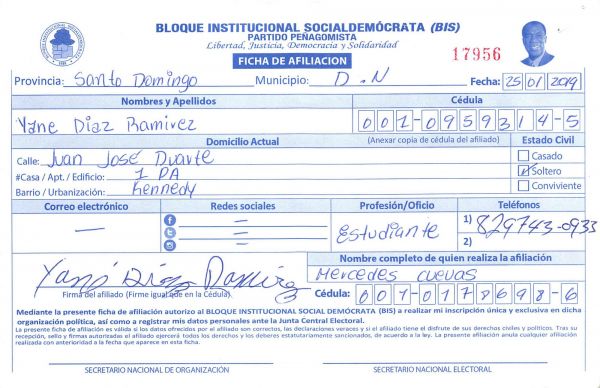 BLOQUE INSTITUCIONAL SOCIALDEMÓCRATA (BIS)
PARTIDO PEÑAGOMISTA
Libertad, Justicia, Democracia y Solidaridad
FICHA DE AFILIACION
17956
Provincia: Santo Domingo Municipio: D.N Fecha: 25/01/2019
Nombres y Apellidos Cédula
Yane Diaz Ramirez 001-0959314-5
Domicilio Actual (Anexar copia de cédula del afiliado) Estado Civil
Calle: Juan José Duarte Casado
#Casa / Apt. / Edificio: 1 PA Soltero
Barrio / Urbanización: Kennedy Conviviente
Correo electrónico Redes sociales Profesión/Oficio Teléfonos
— = = = Estudiante 1) 829743-0933
2)
Nombre completo de quien realiza la afiliación
Mercedes cuevas
Yané Díaz Ramirez
Firma del afiliado (Firme igual que en la Cédula) Cédula: 001-0178698-6
Mediante la presente ficha de afiliación autorizo al BLOQUE INSTITUCIONAL SOCIAL DEMÓCRATA (BIS) a realizar mi inscripción única y exclusiva en dicha
organización política, así como a registrar mis datos personales ante la Junta Central Electoral.
La presente ficha de afiliación es válida si los datos ofrecidos por el afiliado son correctos, las declaraciones veraces y si el afiliado tiene el disfrute de sus derechos civiles y políticos. Tras su
recepción, sello y firmas autorizadas el afiliado ejercerá todos los derechos y los deberes estatutariamente sancionados, de acuerdo a la ley. La presente afiliación anula cualquier afiliación
realizada con anterioridad a la fecha que aparece en esta ficha.
SECRETARIO NACIONAL DE ORGANIZACIÓN SECRETARIO NACIONAL ELECTORAL